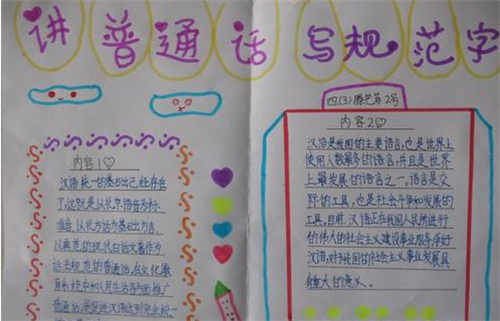 讲普通话 写规范字
四(3)滕艺苒 2号
内容1
汉语统一的基础已经存在
了,这就是以北京语音为标
准音,以北方话为基础方言,
以典范的现代白话文著作为
语法规范的普通话,在文化教
育系统中和人民生活各方面推广
普通话,是促进汉语达到完全统一
内容2
汉语是我国的主要语言,也是世界上
使用人数最多的语言,并且是世界
上最发展的语言之一。语言是交
际的工具,也是社会斗争和发展的
工具,目前,汉语正在为我国人民所进行
的伟大的社会主义建设事业服务。学好
汉语,对于我国的社会主义事业发展具
有重大的意义。